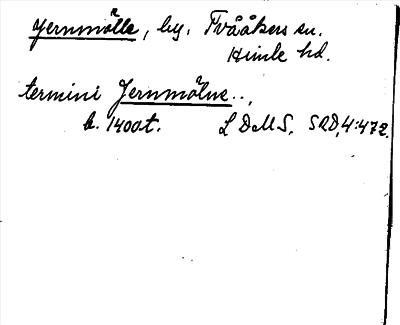 Jernmölle, by. Tvååkers sn.
Himle hd.
termini Jernmölne..,
b. 1400t. LDMS, SRD,4:472.